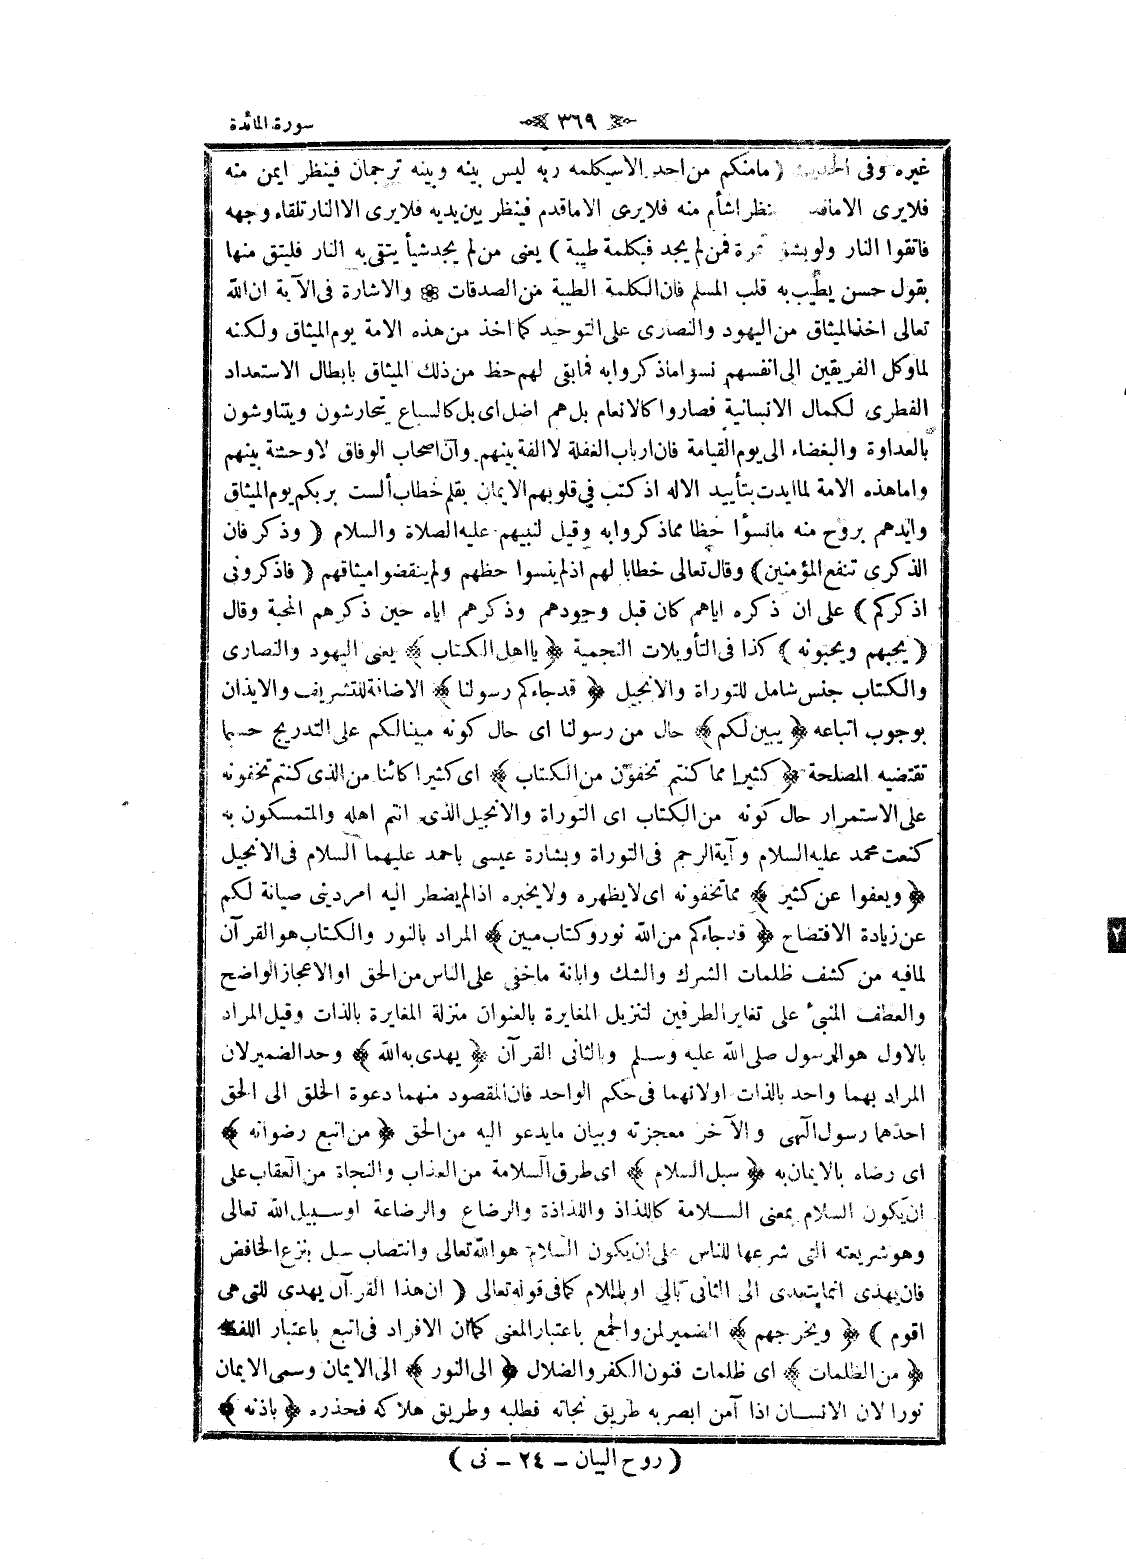 سورة المائدة
٣٦٩
غيره وفى الحديث ( مامنكم من احد الاسيكلمه ربه ليس بينه وبينه ترجمان فينظر ايمن منه
فلايرى الا ماقدم نظر اشأم منه فلايرى الا ماقدم فينظر بين يديه فلايرى الا النار تلقاء وجهه
فاتقوا النار ولو بشق تمرة فمن لم يجد فبكلمة طيبة ) يعنى من لم يجد شيأ يتقى به النار فليتق منها
بقول حسن يطيب به قلب المسلم فان الكلمة الطيبة من الصدقات ❁ والاشارة فى الآية ان الله
تعالى اخذ الميثاق من اليهود والنصارى على التوحيد كما اخذ من هذه الامة يوم الميثاق ولكنه
لما وكل الفريقين الى انفسهم نسوا ماذكروا به فمابقى لهم حظ من ذلك الميثاق بابطال الاستعداد
الفطرى لكمال الانسانية فصاروا كالانعام بل هم اضل اى بل كالسباع يتحارشون ويتناوشون
بالعداوة والبغضاء الى يوم القيامة فان ارباب الغفلة لا الفة بينهم وان اصحاب الوفاق لا وحشة بينهم
واما هذه الامة لما ايدت بتأييد الاله اذ كتب فى قلوبهم الايمان بقلم خطاب ألست بربكم يوم الميثاق
وايدهم بروح منه مانسوا حظا مما ذكروا به وقيل لنبيهم عليه الصلاة والسلام ( وذكر فان
الذكرى تنفع المؤمنين ) وقال تعالى خطابا لهم اذ لم ينسوا حظهم ولم ينقضوا ميثاقهم ( فاذكرونى
اذكركم ) على ان ذكره اياهم كان قبل وجودهم وذكرهم اياه حين ذكرهم المحبة وقال
( يحبهم ويحبونه ) كذا فى التأويلات النجمية ﴿ يا اهل الكتاب ﴾ يعنى اليهود والنصارى
والكتاب جنس شامل للتوراة والانجيل ﴿ قد جاءكم رسولنا ﴾ الاضافة للتشريف والايذان
بوجوب اتباعه ﴿ يبين لكم ﴾ حال من رسولنا اى حال كونه مبينا لكم على التدريج حسبما
تقتضيه المصلحة ﴿ كثيرا مما كنتم تخفون من الكتاب ﴾ اى كثيرا كائنا من الذى كنتم تخفونه
على الاستمرار حال كونه من الكتاب اى التوراة والانجيل الذى انتم اهله والمتمسكون به
كنعت محمد عليه السلام وآية الرجم فى التوراة وبشارة عيسى باحمد عليهما السلام فى الانجيل
﴿ ويعفوا عن كثير ﴾ مما تخفونه اى لايظهره ولايخبره اذا لم يضطر اليه امر دينى صيانة لكم
عن زيادة الافتضاح ﴿ قد جاءكم من الله نور وكتاب مبين ﴾ المراد بالنور والكتاب هو القرآن
لما فيه من كشف ظلمات الشرك والشك وابانة ماخفى على الناس من الحق او الاعجاز الواضح
والعطف المنبئ على تغاير الطرفين لتنزيل المغايرة بالعنوان منزلة المغايرة بالذات وقيل المراد
بالاول هو الرسول صلى الله عليه وسلم وبالثانى القرآن ﴿ يهدى به الله ﴾ وحد الضمير لان
المراد بهما واحد بالذات او لانهما فى حكم الواحد فان المقصود منهما دعوة الخلق الى الحق
احدهما رسول الهى والآخر معجزته وبيان مايدعو اليه من الحق ﴿ من اتبع رضوانه ﴾
اى رضاه بالايمان به ﴿ سبل السلام ﴾ اى طرق السلامة من العذاب والنجاة من العقاب على
ان يكون السلام بمعنى السلامة كاللذاذ واللذاذة والرضاع والرضاعة او سبيل الله تعالى
وهو شريعته التى شرعها للناس على ان يكون السلام هو الله تعالى وانتصاب سبل بنزع الخافض
فان يهدى انما يتعدى الى الثانى بالى او باللام كما فى قوله تعالى ( ان هذا القرآن يهدى للتى هى
اقوم ) ﴿ ويخرجهم ﴾ الضمير لمن والجمع باعتبار المعنى كما ان الافراد فى اتبع باعتبار اللفظ
﴿ من الظلمات ﴾ اى ظلمات فنون الكفر والضلال ﴿ الى النور ﴾ الى الايمان وسمى الايمان
نورا لان الانسان اذا آمن ابصر به طريق نجاته فطلبه وطريق هلاكه فحذره ﴿ باذنه ﴾
( روح البيان – ٢٤ – نى )
٢